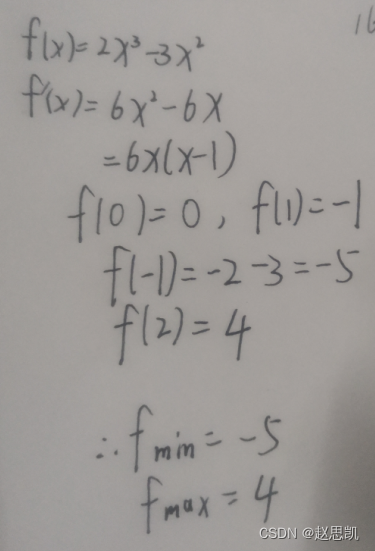 16
f(x)=2x³-3x²
f'(x)=6x²-6x
=6x(x-1)
f(0)=0, f(1)=-1
f(-1)=-2-3=-5
f(2)=4
∴fmin=-5
fmax=4
CSDN @赵思凯